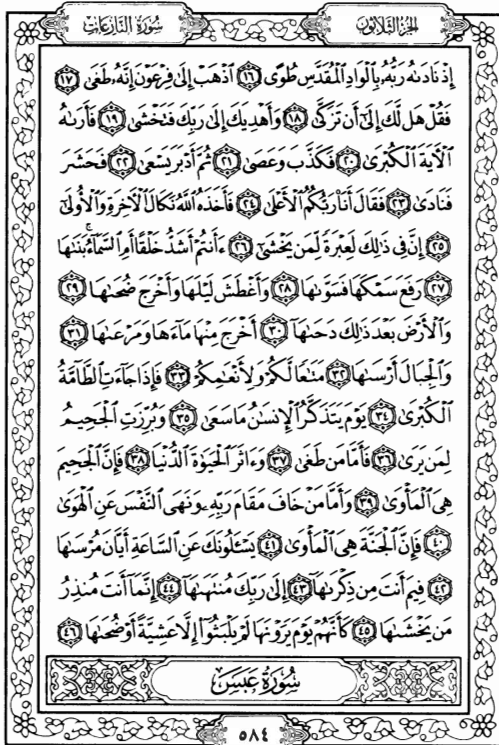 سُورَةُ النَّازِعَاتِ
الجُزءُ الثَّلَاثُونَ
إِذْ نَادَىٰهُ رَبُّهُۥ بِٱلْوَادِ ٱلْمُقَدَّسِ طُوًى ١٦ ٱذْهَبْ إِلَىٰ فِرْعَوْنَ إِنَّهُۥ طَغَىٰ ١٧
فَقُلْ هَل لَّكَ إِلَىٰٓ أَن تَزَكَّىٰ ١٨ وَأَهْدِيَكَ إِلَىٰ رَبِّكَ فَتَخْشَىٰ ١٩ فَأَرَىٰهُ
ٱلْأٓيَةَ ٱلْكُبْرَىٰ ٢٠ فَكَذَّبَ وَعَصَىٰ ٢١ ثُمَّ أَدْبَرَ يَسْعَىٰ ٢٢ فَحَشَرَ
فَنَادَىٰ ٢٣ فَقَالَ أَنَا۠ رَبُّكُمُ ٱلْأَعْلَىٰ ٢٤ فَأَخَذَهُ ٱللَّهُ نَكَالَ ٱلْأٓخِرَةِ وَٱلْأُولَىٰٓ
٢٥ إِنَّ فِى ذَٰلِكَ لَعِبْرَةً لِّمَن يَخْشَىٰٓ ٢٦ ءَأَنتُمْ أَشَدُّ خَلْقًا أَمِ ٱلسَّمَآءُ ۚ بَنَىٰهَا
٢٧ رَفَعَ سَمْكَهَا فَسَوَّىٰهَا ٢٨ وَأَغْطَشَ لَيْلَهَا وَأَخْرَجَ ضُحَىٰهَا ٢٩
وَٱلْأَرْضَ بَعْدَ ذَٰلِكَ دَحَىٰهَآ ٣٠ أَخْرَجَ مِنْهَا مَآءَهَا وَمَرْعَىٰهَا ٣١
وَٱلْجِبَالَ أَرْسَىٰهَا ٣٢ مَتَٰعًا لَّكُمْ وَلِأَنْعَٰمِكُمْ ٣٣ فَإِذَا جَآءَتِ ٱلطَّآمَّةُ
ٱلْكُبْرَىٰ ٣٤ يَوْمَ يَتَذَكَّرُ ٱلْإِنسَٰنُ مَا سَعَىٰ ٣٥ وَبُرِّزَتِ ٱلْجَحِيمُ
لِمَن يَرَىٰ ٣٦ فَأَمَّا مَن طَغَىٰ ٣٧ وَءَاثَرَ ٱلْحَيَوٰةَ ٱلدُّنْيَا ٣٨ فَإِنَّ ٱلْجَحِيمَ
هِىَ ٱلْمَأْوَىٰ ٣٩ وَأَمَّا مَنْ خَافَ مَقَامَ رَبِّهِۦ وَنَهَى ٱلنَّفْسَ عَنِ ٱلْهَوَىٰ
٤٠ فَإِنَّ ٱلْجَنَّةَ هِىَ ٱلْمَأْوَىٰ ٤١ يَسْـَٔلُونَكَ عَنِ ٱلسَّاعَةِ أَيَّانَ مُرْسَىٰهَا
٤٢ فِيمَ أَنتَ مِن ذِكْرَىٰهَآ ٤٣ إِلَىٰ رَبِّكَ مُنتَهَىٰهَآ ٤٤ إِنَّمَآ أَنتَ مُنذِرُ
مَن يَخْشَىٰهَا ٤٥ كَأَنَّهُمْ يَوْمَ يَرَوْنَهَا لَمْ يَلْبَثُوٓا۟ إِلَّا عَشِيَّةً أَوْ ضُحَىٰهَا ٤٦
سُورَةُ عَبَسَ
٥٨٤